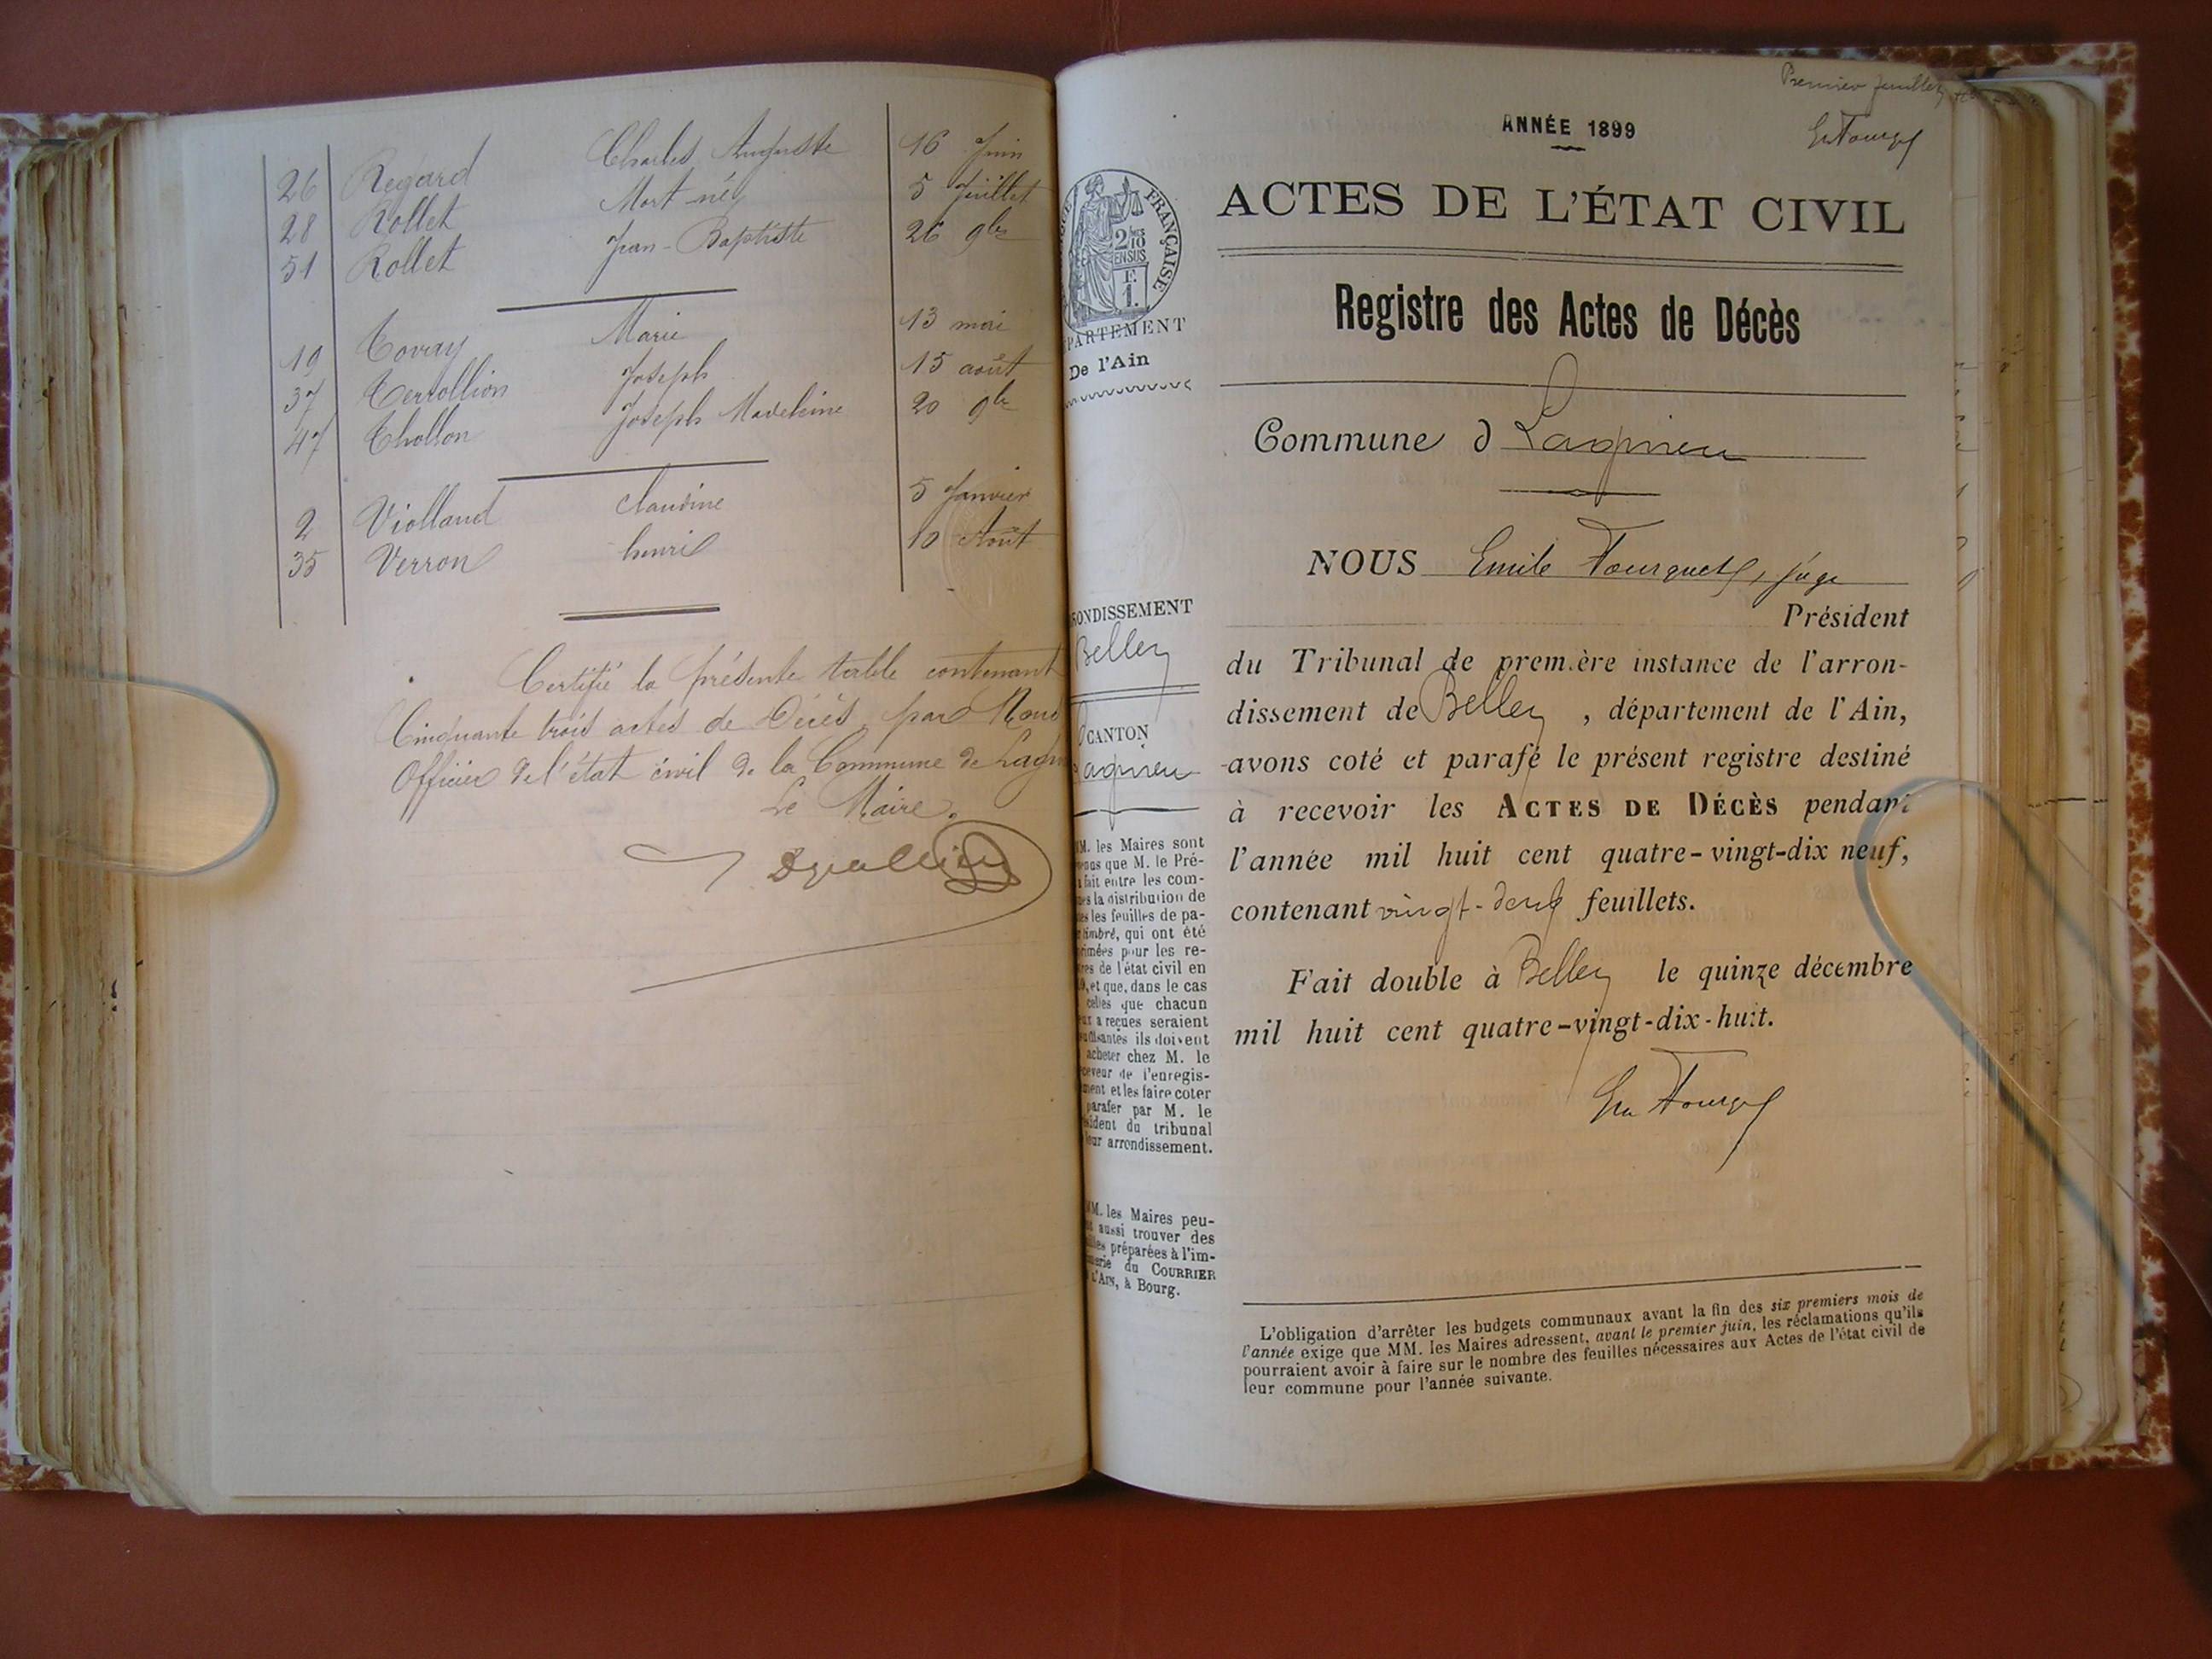 26 Regard Charles Auguste 16 Juin
28 Rollet Mort-né 5 Juillet
51 Rollet Jean-Baptiste 26 9bre
19 Tovray Marie 13 mai
37 Terrollion Joseph 15 août
47 Thollon Joseph Madeleine 20 9bre
2 Violland Claudine 5 Janvier
35 Verron henri 10 Août
Certifié la présente table contenant
Cinquante trois actes de Décès par Nous
Officier de l'état civil de la Commune de Lagn
Le Maire.
Premier feuillet
ANNÉE 1899
ACTES DE L'ÉTAT CIVIL
FRANÇAISE
2/10
EN SUS
F.
1.
PARTEMENT
De l'Ain
Registre des Actes de Décès
Commune d Lagnieu
NOUS Emile Fourquet, juge
Président
du Tribunal de première instance de l'arron-
dissement de Belley , département de l'Ain,
avons coté et parafé le présent registre destiné
à recevoir les ACTES DE DÉCÈS pendant
l'année mil huit cent quatre-vingt-dix neuf,
contenant vingt-deux feuillets.
Fait double à Belley le quinze décembre
mil huit cent quatre-vingt-dix-huit.
Em Fourqt
ONDISSEMENT
Belley
CANTON
Lagnieu
M. les Maires sont
que M. le Pré-
fait entre les com-
la distribution de
les feuilles de pa-
timbré, qui ont été
primées pour les re-
de l'état civil en
et que, dans le cas
celles que chacun
a reçues seraient
ils doivent
acheter chez M. le
receveur de l'enregis-
ment et les faire coter
parafer par M. le
sident du tribunal
leur arrondissement.
MM. les Maires peu-
aussi trouver des
préparées à l'im-
du COURRIER
L'AIN, à Bourg.
L'obligation d'arrêter les budgets communaux avant la fin des six premiers mois de
l'année exige que MM. les Maires adressent, avant le premier juin, les réclamations qu'ils
pourraient avoir à faire sur le nombre des feuilles nécessaires aux Actes de l'état civil de
leur commune pour l'année suivante.